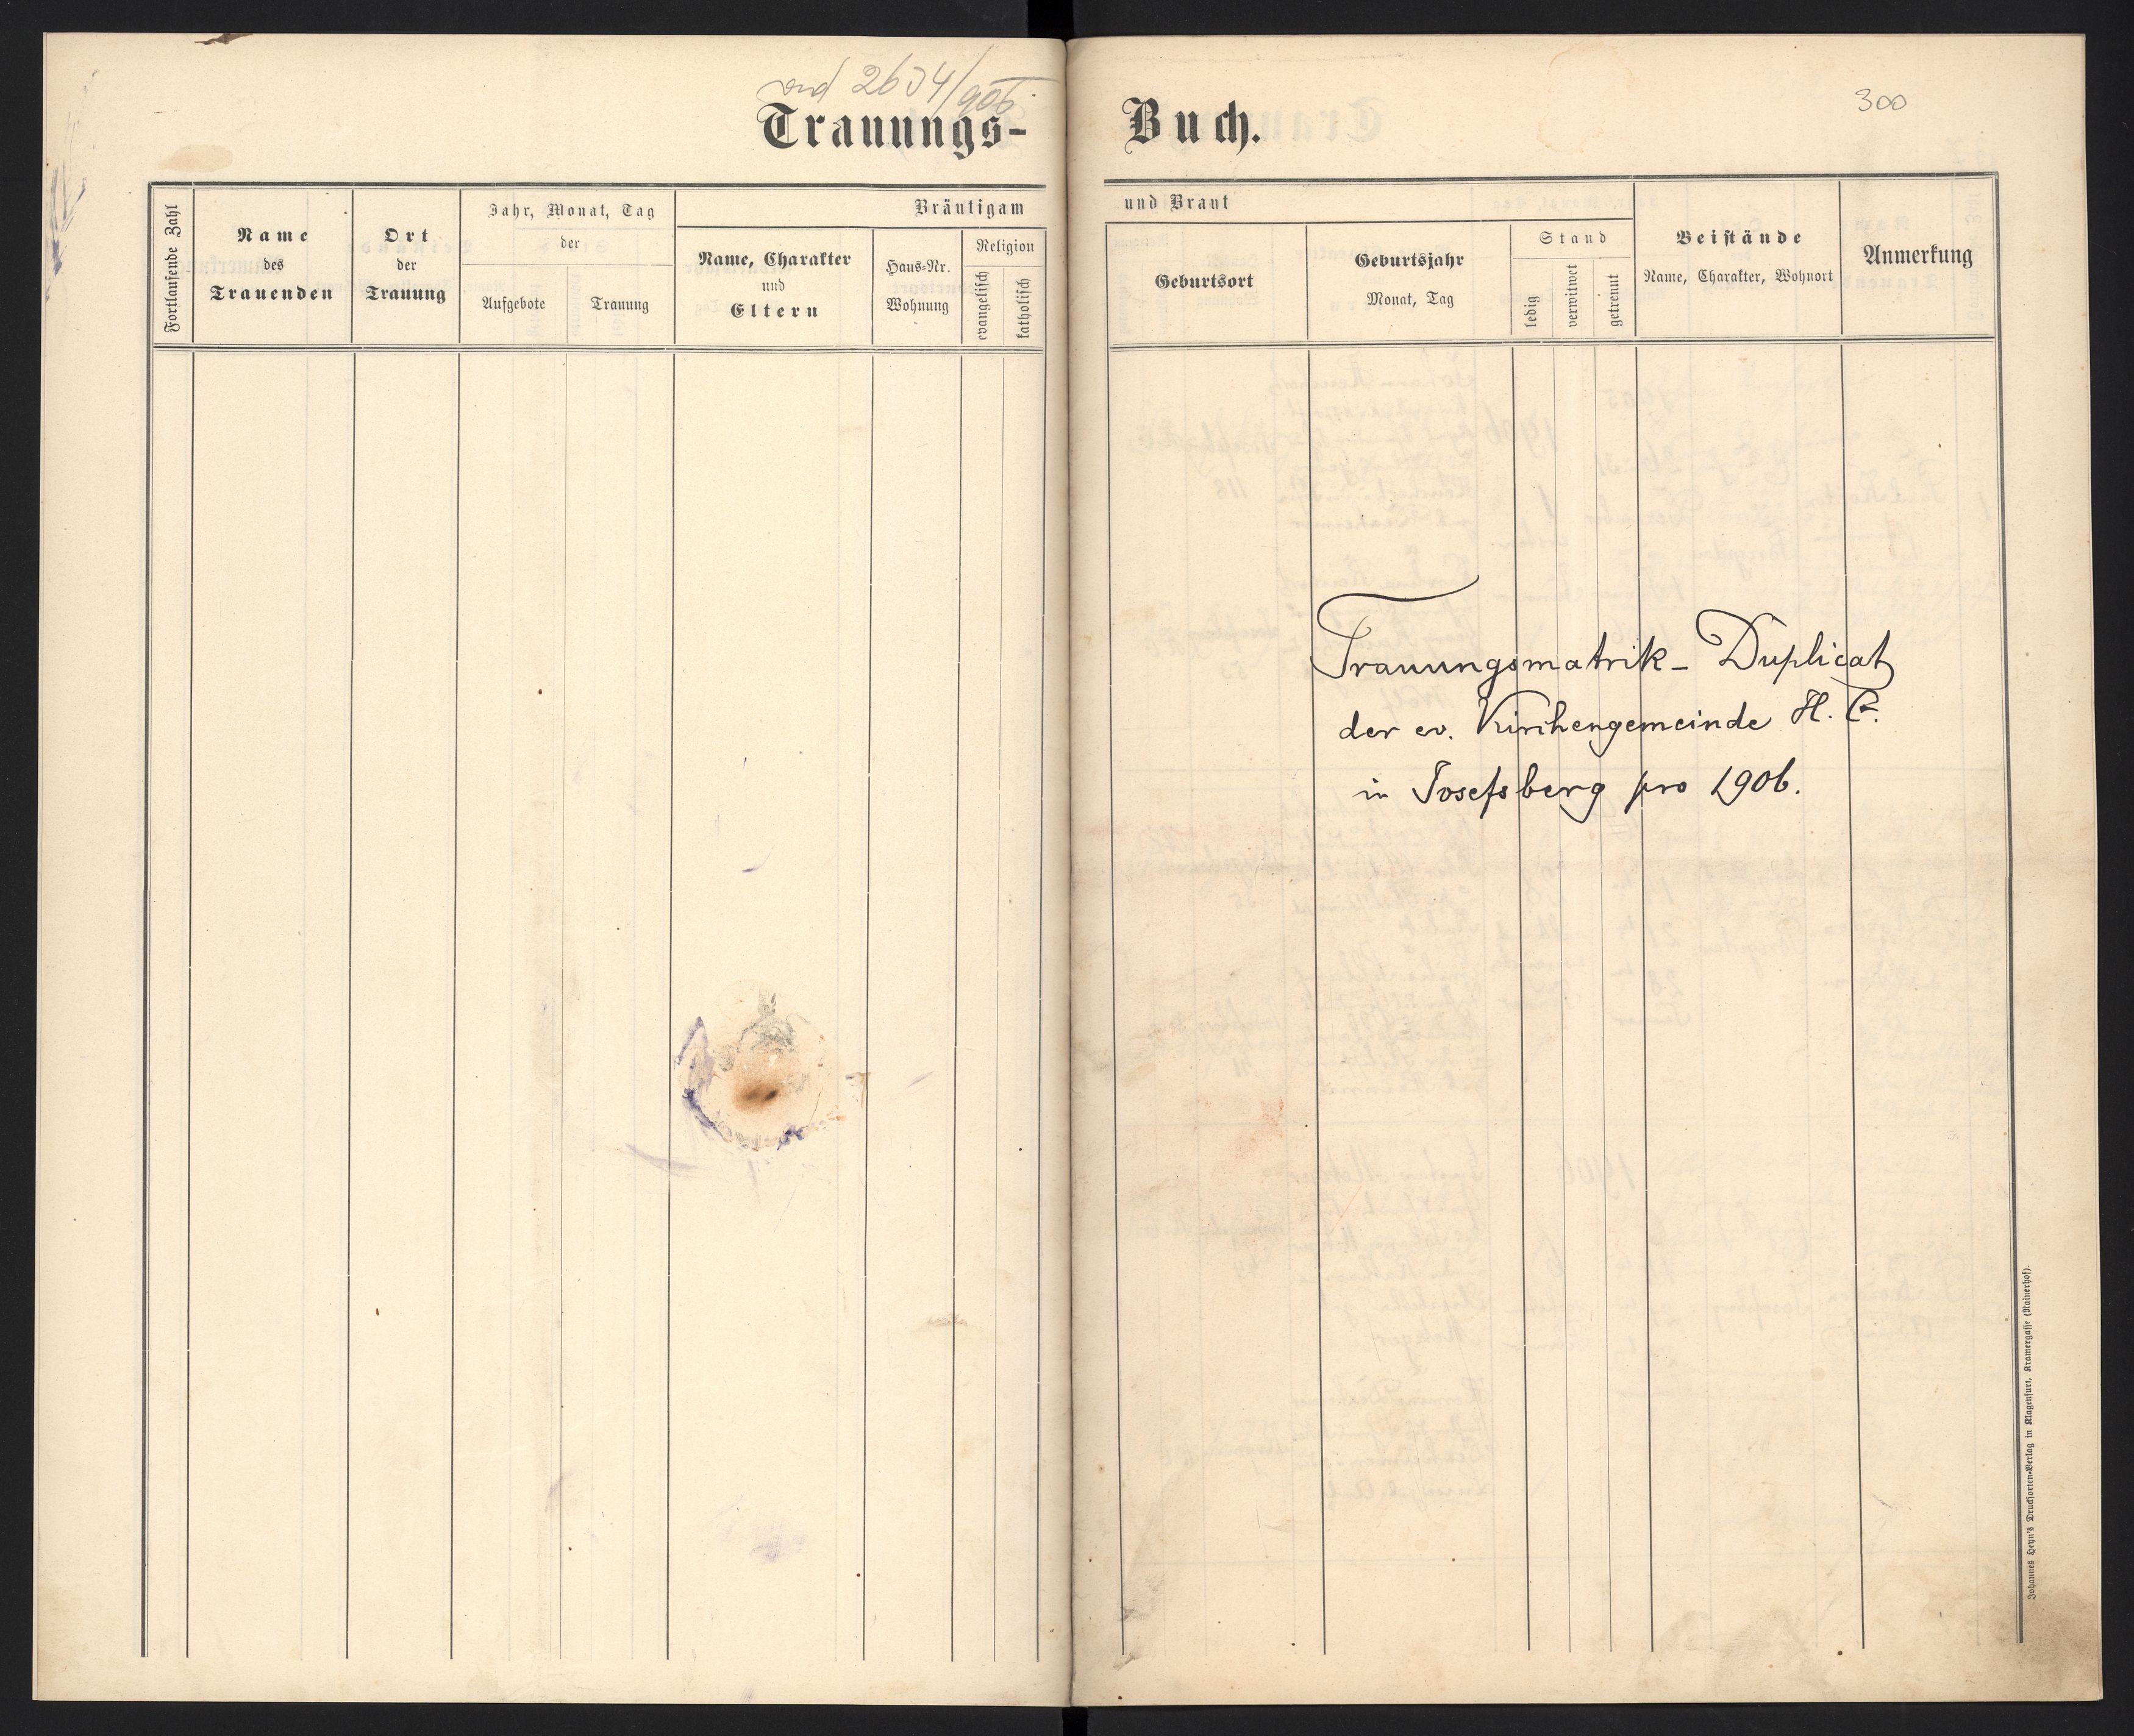 2634/906
Trauungs-
Fortlaufende Zahl
Name
des
Trauenden
Ort
der
Trauung
Jahr, Monat, Tag
der
Aufgebote
Trauung
Bräutigam
Name, Charakter
und
Eltern
Haus-Nr.
Wohnung
Religion
evangelisch
katholisch
300
Buch.
und Braut
Geburtsort
Geburtsjahr
Monat, Tag
Stand
ledig
verwitwet
getrennt
Beistände
Name, Charakter, Wohnort
Anmerkung
Trauungsmatrik-Duplicat
der ev. Kirchengemeinde H. C.
in Josefsberg pro 1906.
Johannes Heyn's Drucksorten-Verlag in Klagenfurt, Kramergasse (Rainerhof).